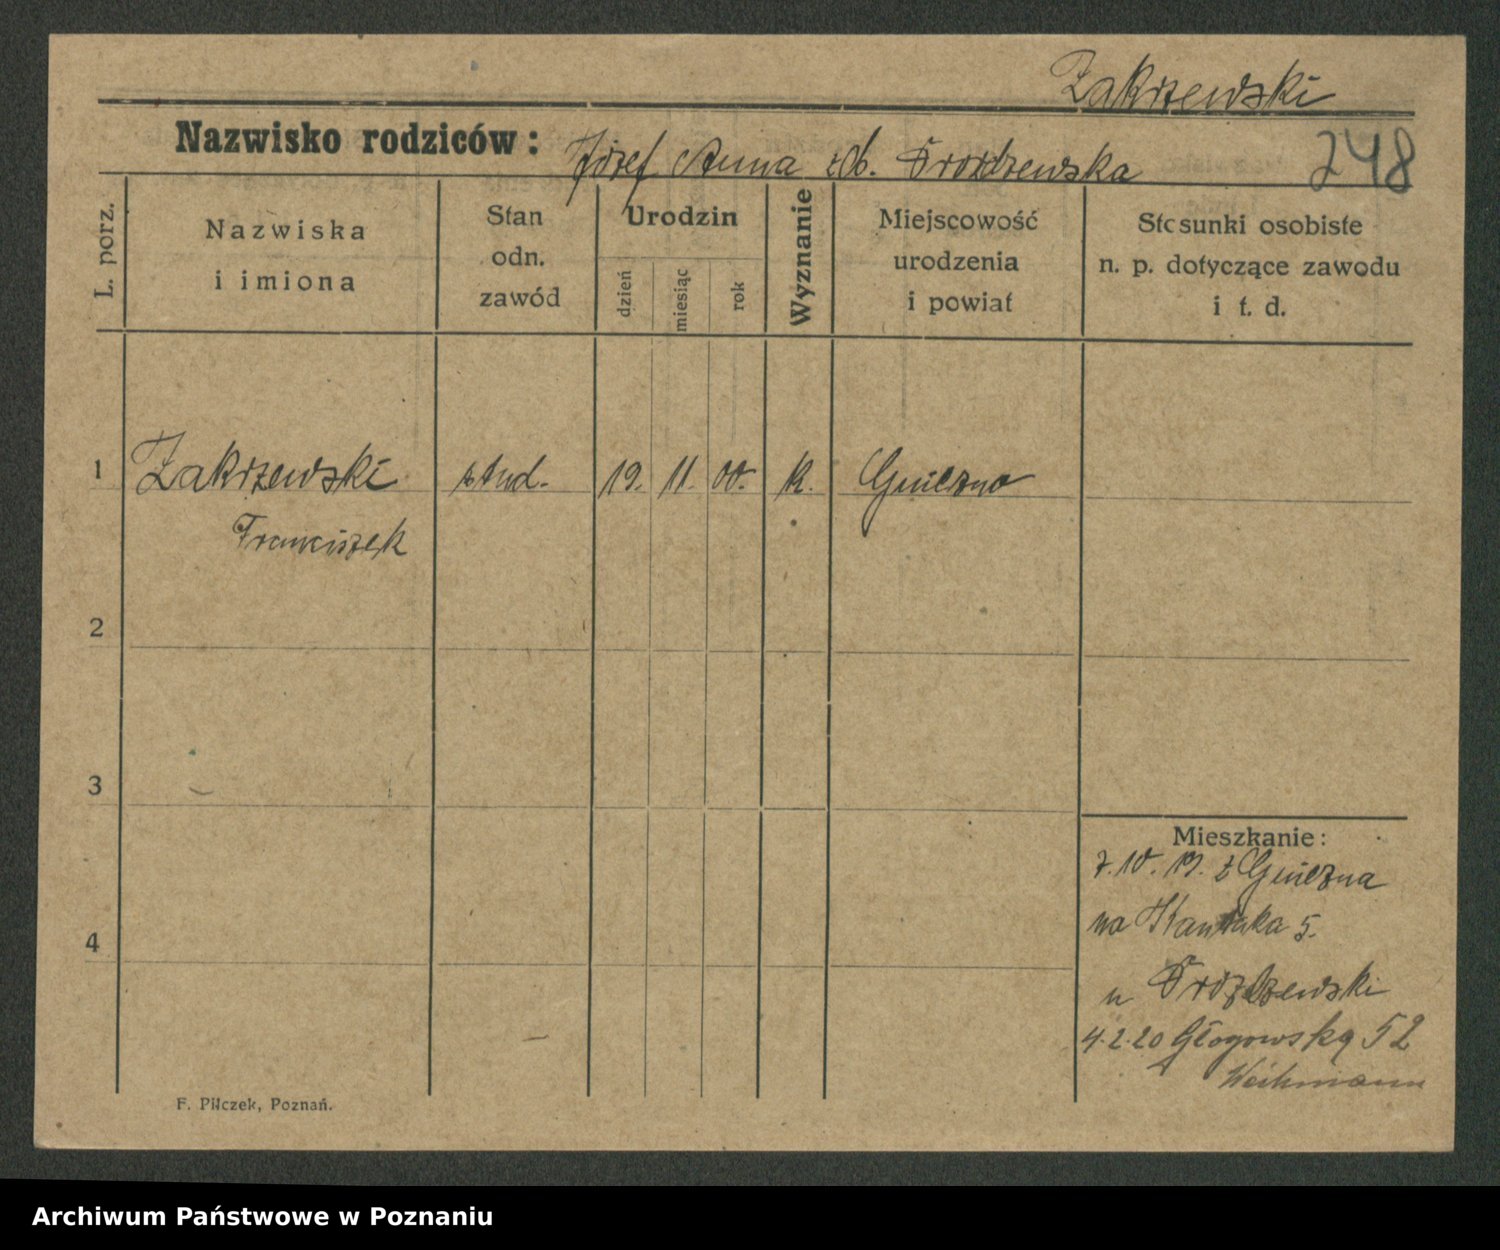 Zakrzewski
Nazwisko rodziców: Józef Anna z d. Drozdzewska
248
L. porz.
Nazwiska
i imiona
Stan
odn.
zawód
Urodzin
dzień
miesiąc
rok
Wyznanie
Miejscowość
urodzenia
i powiat
Stosunki osobiste
n. p. dotyczące zawodu
i t. d.
1 Zakrzewski stud. 19. 11. 00. k. Gniezno
Franciszek
2
3
4
Mieszkanie:
7. 10. 19. z Gniezna
na 5.
u
4.2.20 Głogowska 52
Weihmann
F. Pilczek, Poznań.
Archiwum Państwowe w Poznaniu